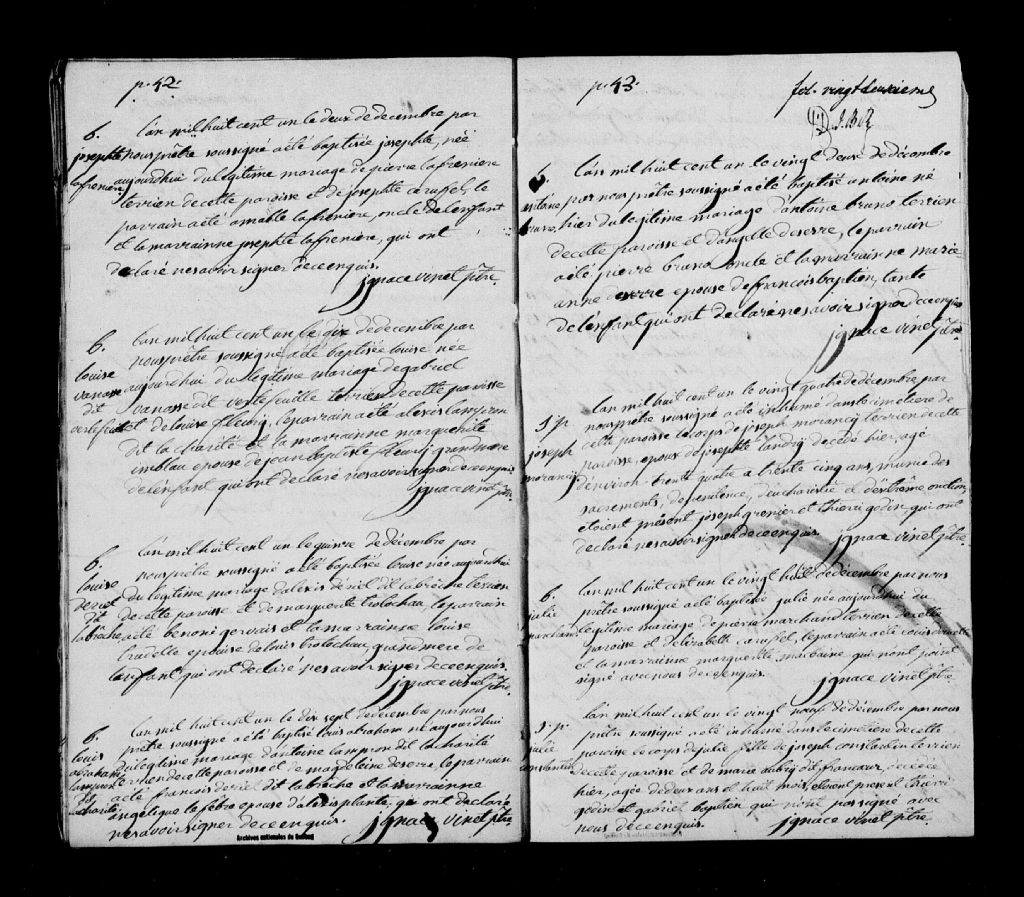 p. 42.
B.
josephte
lafreniere
L'an mil huit cent un le deux de decembre par
nous prêtre soussigné a été baptisée josephte, née
aujourdhui du legitime mariage de pierre lafreniere
terrien de cette paroisse et de josephte carufel, le
parrain a été amable lafreniere, oncle de l'enfant
et la marrainne josephte lafreniere, qui ont
declaré ne savoir signer de ce enquis.
ignace vinet ptre.
B.
louise
vanasse
dit
vertefeuille
L'an mil huit cent un le dix de decembre par
nous prêtre soussigné a été baptisée louise née
aujourdhui du legitime mariage de gabriel
vanasse dit vertefeuille terrien de cette paroisse
et de louise fleury, le parrain a été alexis lampron
dit la charité et la marrainne marguerite
emblau epouse de jean baptiste fleury grandmere
de l'enfant qui ont declaré ne savoir signer de ce enquis
ignace vinet ptre.
B.
louise
deriel
dit
labrèche
L'an mil huit cent un le quinze de décembre par
nous prêtre soussigné a été baptisée louise née aujourdhui
du legitime mariage d'alexis deriel dit labrèche terrien
de cette paroisse et de marguerite trolochau, le parrain
a été benoni gervais et la marrainne louise
trudelle epouse de louis trolochau, grandmere de
l'enfant, qui ont declaré ne savoir signer de ce enquis.
ignace vinet ptre.
B.
louis
abraham
lampron
dit
charité
L'an mil huit cent un le dix sept de decembre par nous
prêtre soussigné a été baptisé louis abraham né aujourdhui
du legitime mariage d'antoine lampron dit la charité
terrien de cette paroisse et de magdeleine deserre, le parrain
a été francois deriel dit la brèche et la marrainne
angelique lefebre epouse d'alexis plante, qui ont declaré
ne savoir signer de ce enquis. ignace vinet ptre.
Archives nationales du Québec
p. 43.
fol. vingt deuxieme
J.B.
B.
antoine
bruno
L'an mil huit cent un le vingt deux de décembre
par nous prêtre soussigné a été baptisé antoine né
hier du legitime mariage d'antoine bruno terrien
de cette paroisse et d'angelle deserre, le parrain
a été pierre bruno oncle et la marrainne marie
anne deserre epouse de francois baptien, tante
de l'enfant qui ont declaré ne savoir signer de ce enquis
ignace vinet ptre.
S p.
joseph
morancy
L'an mil huit cent un le vingt quatre de décembre par
nous prêtre soussigné a été inhumé dans le cimetiere de
cette paroisse le corps de joseph morancy terrien de cette
paroisse, epoux de josephte landry decedé hier, agé
d'environ trente quatre a trente cinq ans, munie des
sacrements, de penitence, d'eucharistie et d'extrême onction,
etoient présent joseph grenier et thierri godin qui ont
declaré ne savoir signer de ce enquis. ignace vinet ptre.
B.
julie
marchand
L'an mil huit cent un le vingt huit de décembre par nous
prêtre soussigné a été baptisée julie née aujourdhui du
legitime mariage de pierre marchand terrien de cette
paroisse et d'elizabeth carufel, le parrain a été
et la marrainne marguerite qui n'ont point
signé avec nous de ce enquis. ignace vinet ptre.
S. p.
julie
constantin
L'an mil huit cent un le vingt neuf de décembre par nous
prêtre soussigné a été inhumé dans le cimetière de cette
paroisse le corps de julie fille de joseph constantin terrien
de cette paroisse et de marie aubry dit francoeur, decedée
hier, agée de deux ans et huit mois, etoient present thierri
godin et gabriel baptien qui n'ont pas signé avec
nous de ce enquis. ignace vinet ptre.